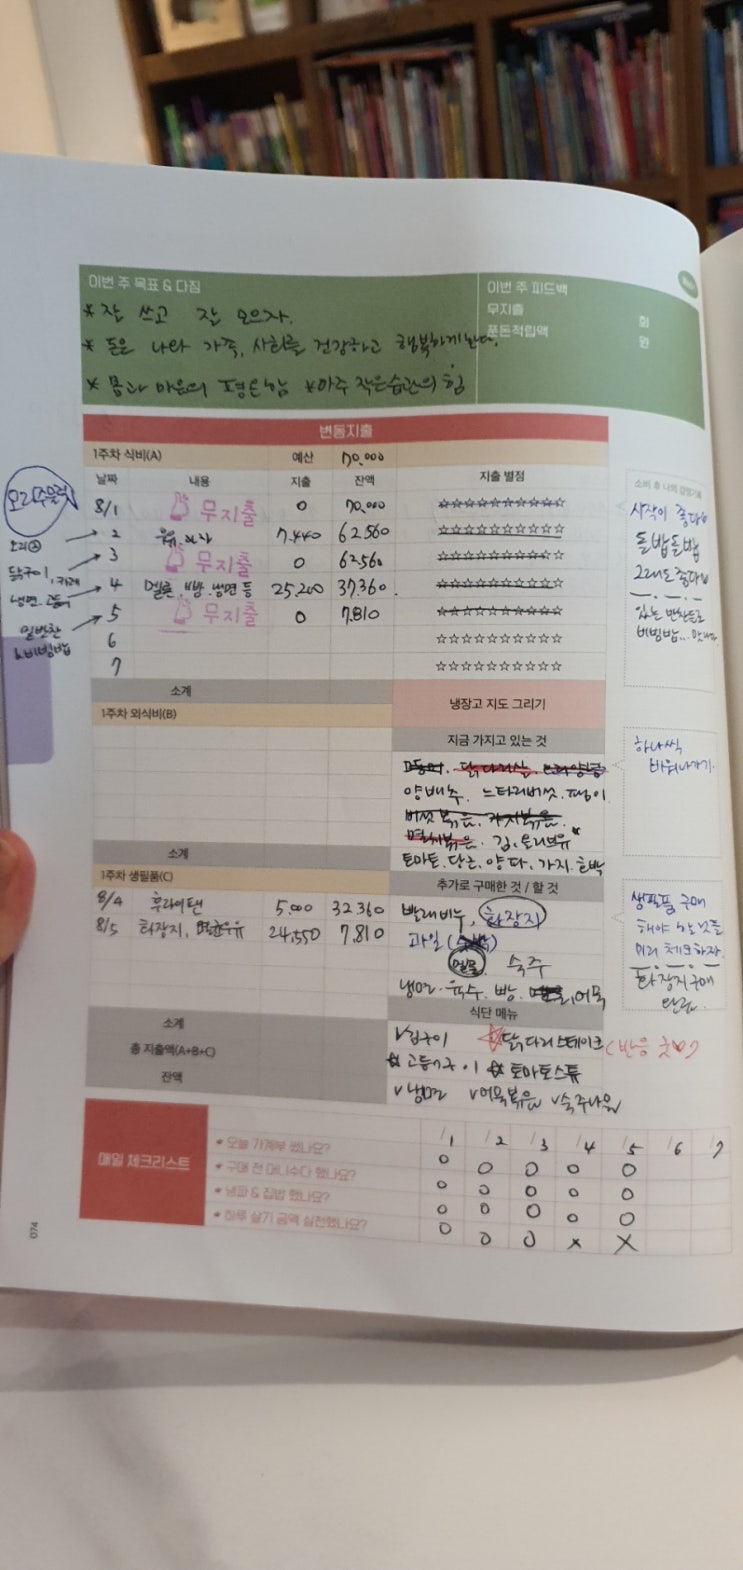 이번 주 목표 & 다짐
* 잘 쓰고 잘 모으자.
* 돈은 나와 가족, 사회를 건강하고 행복하게 한다.
* 몸과 마음의 평온함 * 아주 작은 습관의 힘
이번 주 피드백
무지출 회
푼돈적립액 원
변동지출
1주차 식비(A) 예산 70,000
날짜 내용 지출 잔액 지출 별점
8/1 무지출 0 70,000 ☆☆☆☆☆☆☆☆☆☆
2 7,440 62,560 ☆☆☆☆☆☆☆☆☆☆
3 무지출 0 62,560 ☆☆☆☆☆☆☆☆☆☆
4 멜론, 빵, 냉면 등 25,200 37,360 ☆☆☆☆☆☆☆☆☆☆
5 무지출 0 7,810 ☆☆☆☆☆☆☆☆☆☆
6 ☆☆☆☆☆☆☆☆☆☆
7 ☆☆☆☆☆☆☆☆☆☆
소계
닭구이, 카레
일반찬
비빔밥
소비 후 나의 감정기록
시작이 좋다
돌밥돌밥
그래도 좋다
있는 반찬들로
비빔밥...
1주차 외식비(B)
소계
냉장고 지도 그리기
지금 가지고 있는 것
닭다리살
양배추, 느타리버섯, 팽이
버섯볶음, 가지볶음
멸치볶음, 김, 올리브유
토마토, 당근, 양파, 가지, 호박
하나씩
비워나가기
1주차 생필품(C)
8/4 후라이팬 5,000 32,360
8/5 화장지, 멸균우유 24,550 7,810
소계
총 지출액(A+B+C)
잔액
추가로 구매한 것 / 할 것
빨래비누, 화장지
과일 (수박)
멜론 숙주
냉면, 육수, 빵, 어묵
생필품 구매
해야 하는 것들
미리 체크하자.
화장지 구매
완료.
식단 메뉴
v 김구이 닭다리스테이크 (반응 굿)
고등어구이 토마토스튜
v 냉면 v 어묵볶음 v 숙주나물
매일 체크리스트
/1 /2 /3 /4 /5 /6 /7
* 오늘 가계부 썼나요? O O O O O
* 구매 전 머니수다 했나요? O O O O O
* 냉파 & 집밥 했나요? O O O O O
* 하루 살기 금액 실천했나요? O O O X X
074